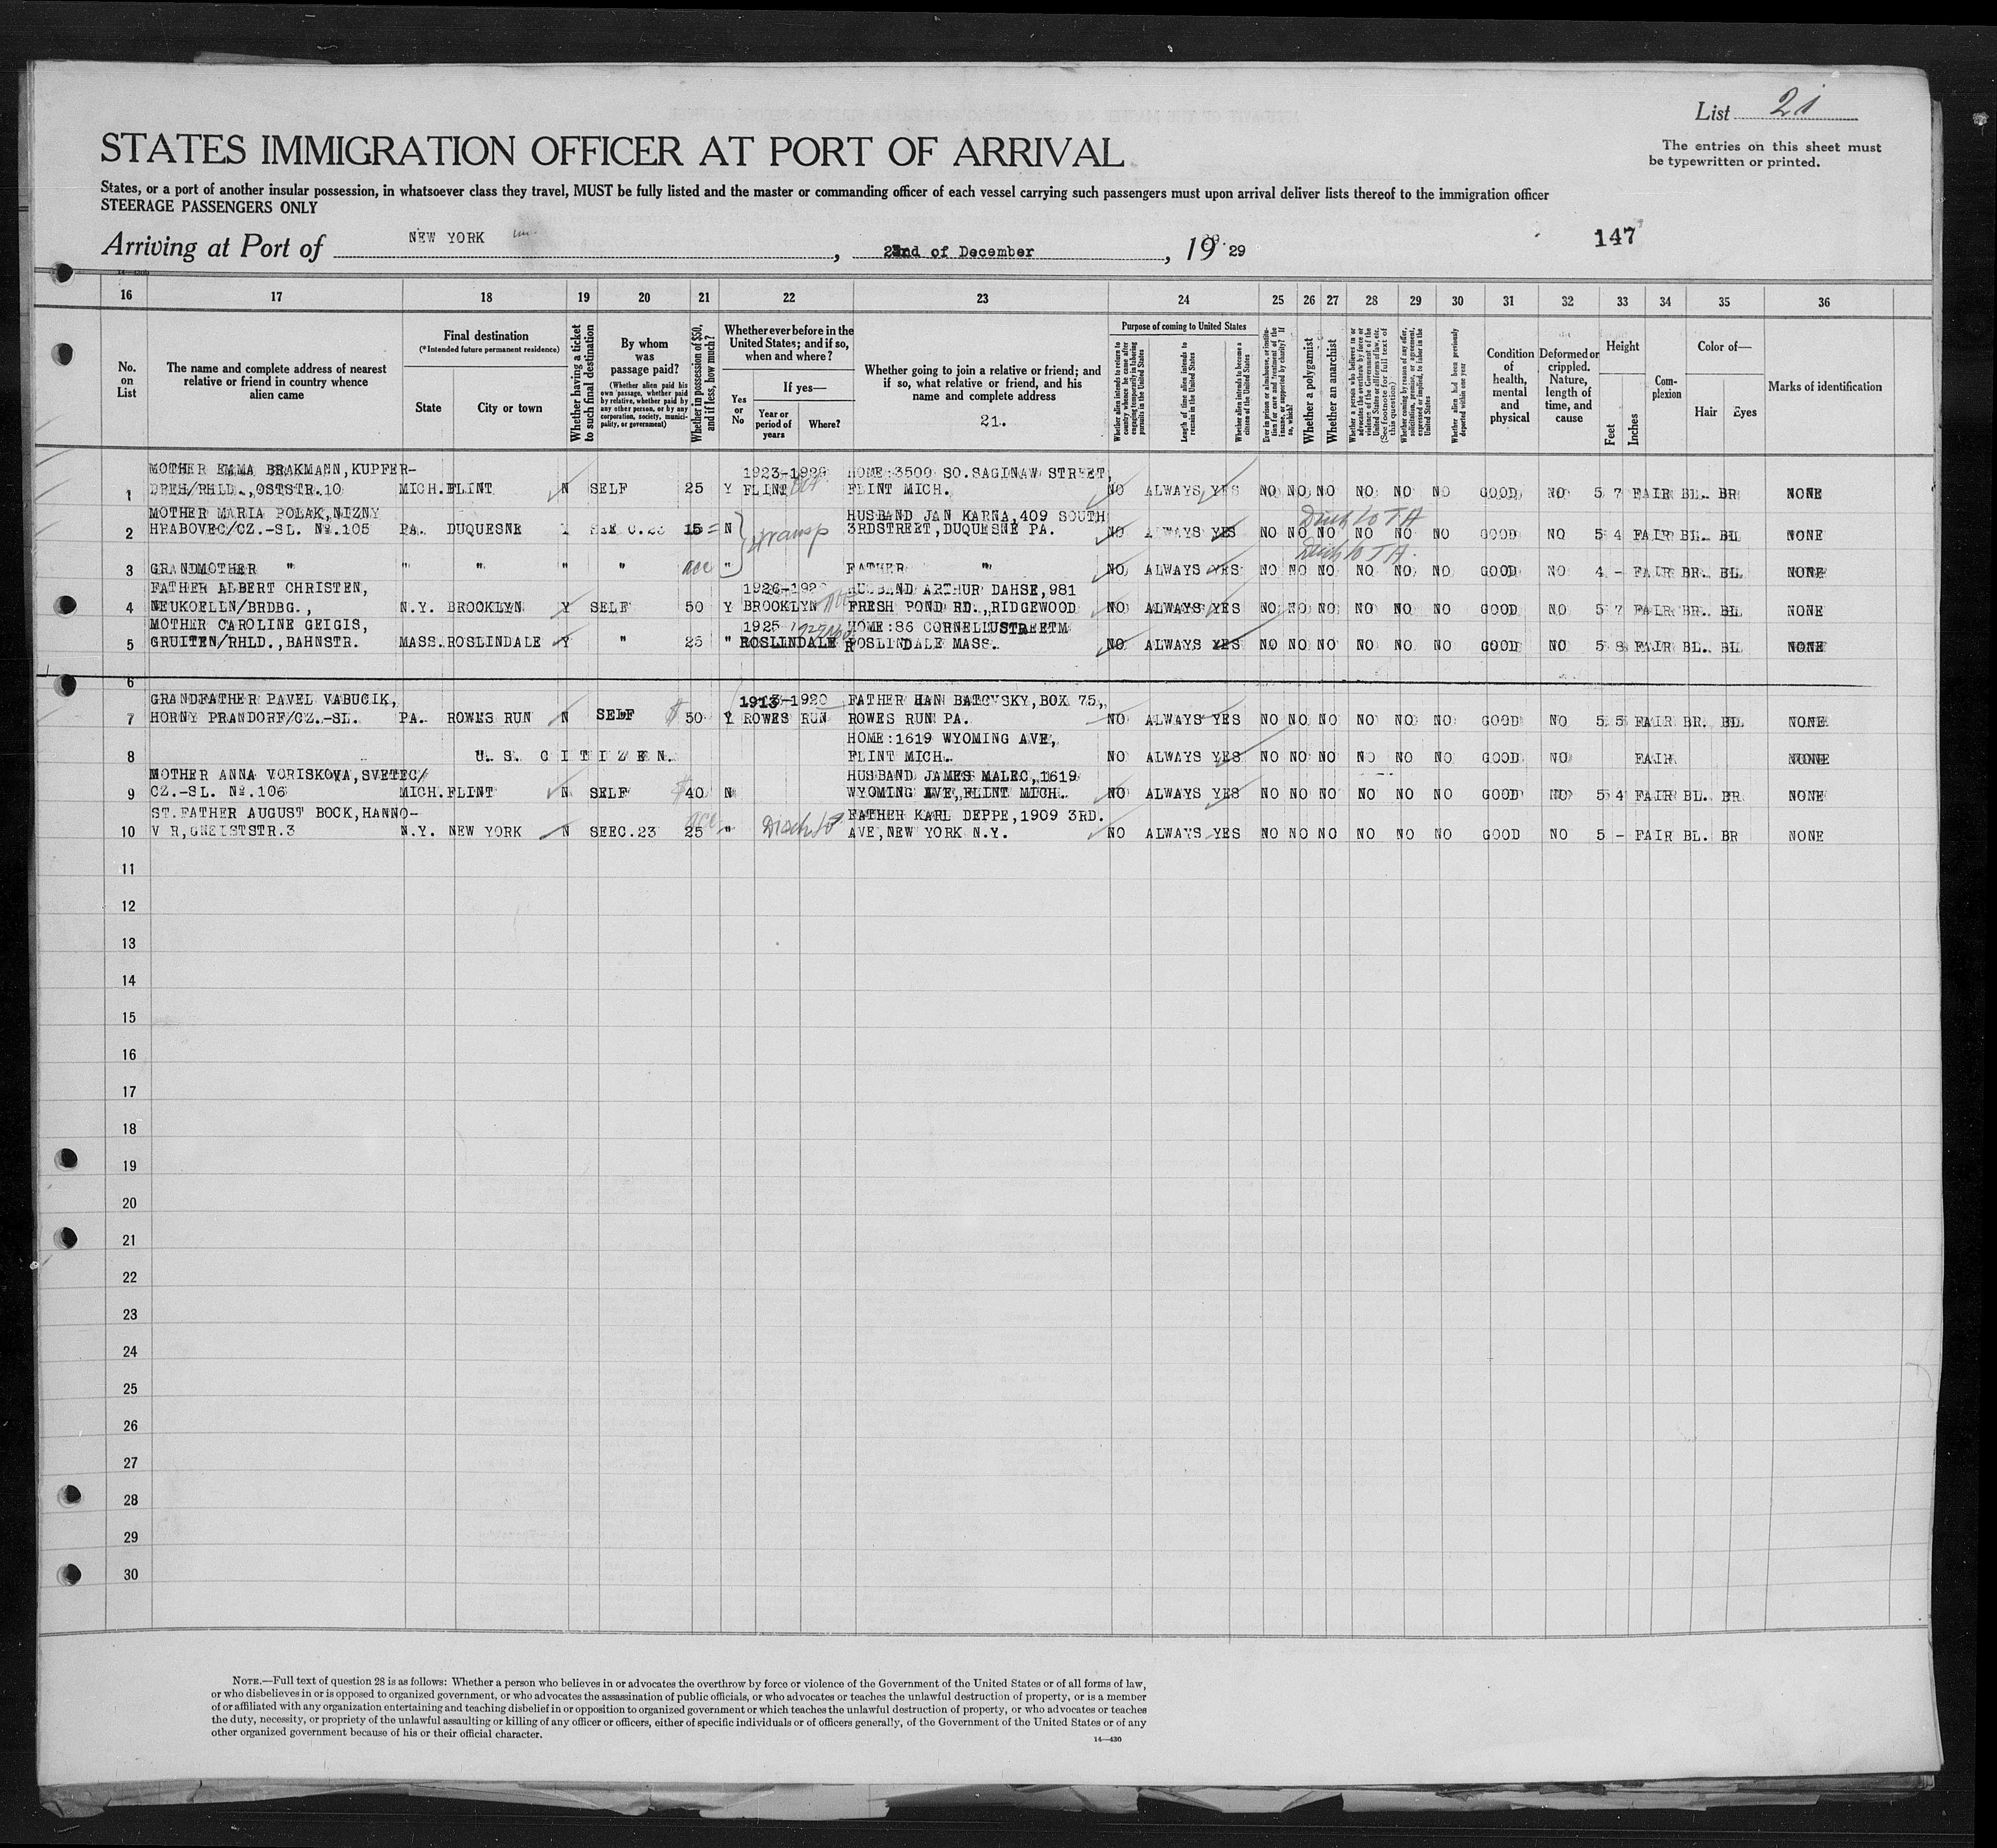 List 21
The entries on this sheet must
be typewritten or printed.
STATES IMMIGRATION OFFICER AT PORT OF ARRIVAL
States, or a port of another insular possession, in whatsoever class they travel, MUST be fully listed and the master or commanding officer of each vessel carrying such passengers must upon arrival deliver lists thereof to the immigration officer
STEERAGE PASSENGERS ONLY
Arriving at Port of NEW YORK, 22nd of December, 19 29
147
16 17 18 19 20 21 22 23 24 25 26 27 28 29 30 31 32 33 34 35 36
No. on List
The name and complete address of nearest relative or friend in country whence alien came
Final destination
(*Intended future permanent residence)
State
City or town
Whether having a ticket to such final destination
By whom was passage paid?
(Whether alien paid his own passage, whether paid by relative, whether paid by any other person, or by any corporation, society, municipality, or government)
Whether in possession of $50, and if less, how much?
Whether ever before in the United States; and if so, when and where?
Yes or No
If yes—
Year or period of years
Where?
Whether going to join a relative or friend; and if so, what relative or friend, and his name and complete address
21.
Purpose of coming to United States
Whether alien intends to return to country whence he came after engaging temporarily in laboring pursuits in the United States
Length of time alien intends to remain in the United States
Whether alien intends to become a citizen of the United States
Ever in prison or almshouse, or institution for care and treatment of the insane, or supported by charity? If so, which?
Whether a polygamist
Whether an anarchist
Whether a person who believes in or advocates the overthrow by force or violence of the Government of the United States or all forms of law, etc. (See footnote for full text of this question)
Whether coming by reason of any offer, solicitation, promise, or agreement, expressed or implied, to labor in the United States
Whether alien had been previously deported within one year
Condition of health, mental and physical
Deformed or crippled. Nature, length of time, and cause
Height
Feet
Inches
Complexion
Color of—
Hair
Eyes
Marks of identification
MOTHER EMMA BRAKMANN,KUPFER- 1923-1929 HOME:3500 SO.SAGINAW STREET,
1 DREH/RHLD.,OSTSTR.10 MICH. FLINT N SELF 25 Y FLINT FLINT MICH. NO ALWAYS YES NO NO NO NO NO NO GOOD NO 5 7 FAIR BL. BR NONE
MOTHER MARIA POLAK,NIZNY HUSBAND JAN KARNA,409 SOUTH
2 HRABOVEC/CZ.-SL. No.105 PA. DUQUESNE SEE C.23 15 N transp 3RDSTREET,DUQUESNE PA. NO ALWAYS YES NO NO NO NO NO NO GOOD NO 5 4 FAIR BL. BL NONE
3 GRANDMOTHER " " " " " acc " FATHER " NO ALWAYS YES NO NO NO NO NO NO GOOD NO 4 - FAIR BR. BL NONE
FATHER ALBERT CHRISTEN, HUSBAND ARTHUR DAHSE,981
4 NEUKOELLN/BRDBG., N.Y. BROOKLYN Y SELF 50 Y BROOKLYN FRESH POND RD.,RIDGEWOOD NO ALWAYS YES NO NO NO NO NO NO GOOD NO 5 7 FAIR BR. BL NONE
MOTHER CAROLINE GEIGIS, 1925 HOME:86 CORNELIUSTREETM
5 GRUITEN/RHLD.,BAHNSTR. MASS. ROSLINDALE Y " 25 " ROSLINDALE ROSLINDALE MASS. NO ALWAYS YES NO NO NO NO NO NO GOOD NO 5 8 FAIR BL. BL NONE
6
GRANDFATHER PAVEL VABUCIK, 1913-1920 FATHER HAN BATOVSKY,BOX 75,
7 HORNY PRANDORF/CZ.-SL. PA. ROWES RUN N SELF $ 50 Y ROWES RUN ROWES RUN PA. NO ALWAYS YES NO NO NO NO NO NO GOOD NO 5 5 FAIR BR. BL NONE
HOME:1619 WYOMING AVE,
8 U.S. CITIZEN FLINT MICH. NO ALWAYS YES NO NO NO NO NO NO GOOD NO FAIR NONE
MOTHER ANNA VORISKOVA,SVETEC/ HUSBAND JAMES MALEC,1619
9 CZ.-SL. No.106 MICH. FLINT N SELF $ 40 N WYOMING AVE,FLINT MICH. NO ALWAYS YES NO NO NO NO NO NO GOOD NO 5 4 FAIR BL. BR NONE
ST.FATHER AUGUST BOCK,HANNO- FATHER KARL DEPPE,1909 3RD.
10 V R,GNEISTSTR.3 N.Y. NEW YORK N SEEC.23 25 " AVE,NEW YORK N.Y. NO ALWAYS YES NO NO NO NO NO NO GOOD NO 5 - FAIR BL. BR NONE
11
12
13
14
15
16
17
18
19
20
21
22
23
24
25
26
27
28
29
30
NOTE.—Full text of question 28 is as follows: Whether a person who believes in or advocates the overthrow by force or violence of the Government of the United States or of all forms of law,
or who disbelieves in or is opposed to organized government, or who advocates the assassination of public officials, or who advocates or teaches the unlawful destruction of property, or is a member
of or affiliated with any organization entertaining and teaching disbelief in or opposition to organized government or which teaches the unlawful destruction of property, or who advocates or teaches
the duty, necessity, or propriety of the unlawful assaulting or killing of any officer or officers, either of specific individuals or of officers generally, of the Government of the United States or of any
other organized government because of his or their official character.
14—430